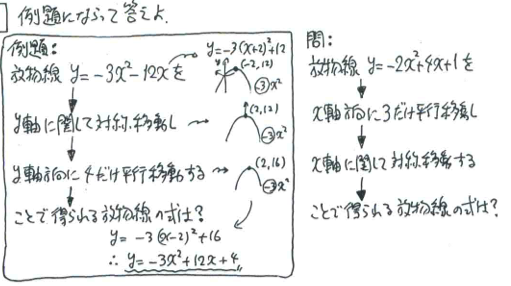 例題にならって答えよ.
例題:
放物線 y=-3x²-12x を
y=-3(x+2)²+12
(-2,12)
-3x²
y軸に関して対称移動し
(2,12)
-3x²
y軸方向に4だけ平行移動する
(2,16)
-3x²
ことで得られる放物線の式は?
y=-3(x-2)²+16
∴ y=-3x²+12x+4
問:
放物線 y=-2x²+4x+1 を
x軸方向に3だけ平行移動し
x軸に関して対称移動する
ことで得られる放物線の式は?